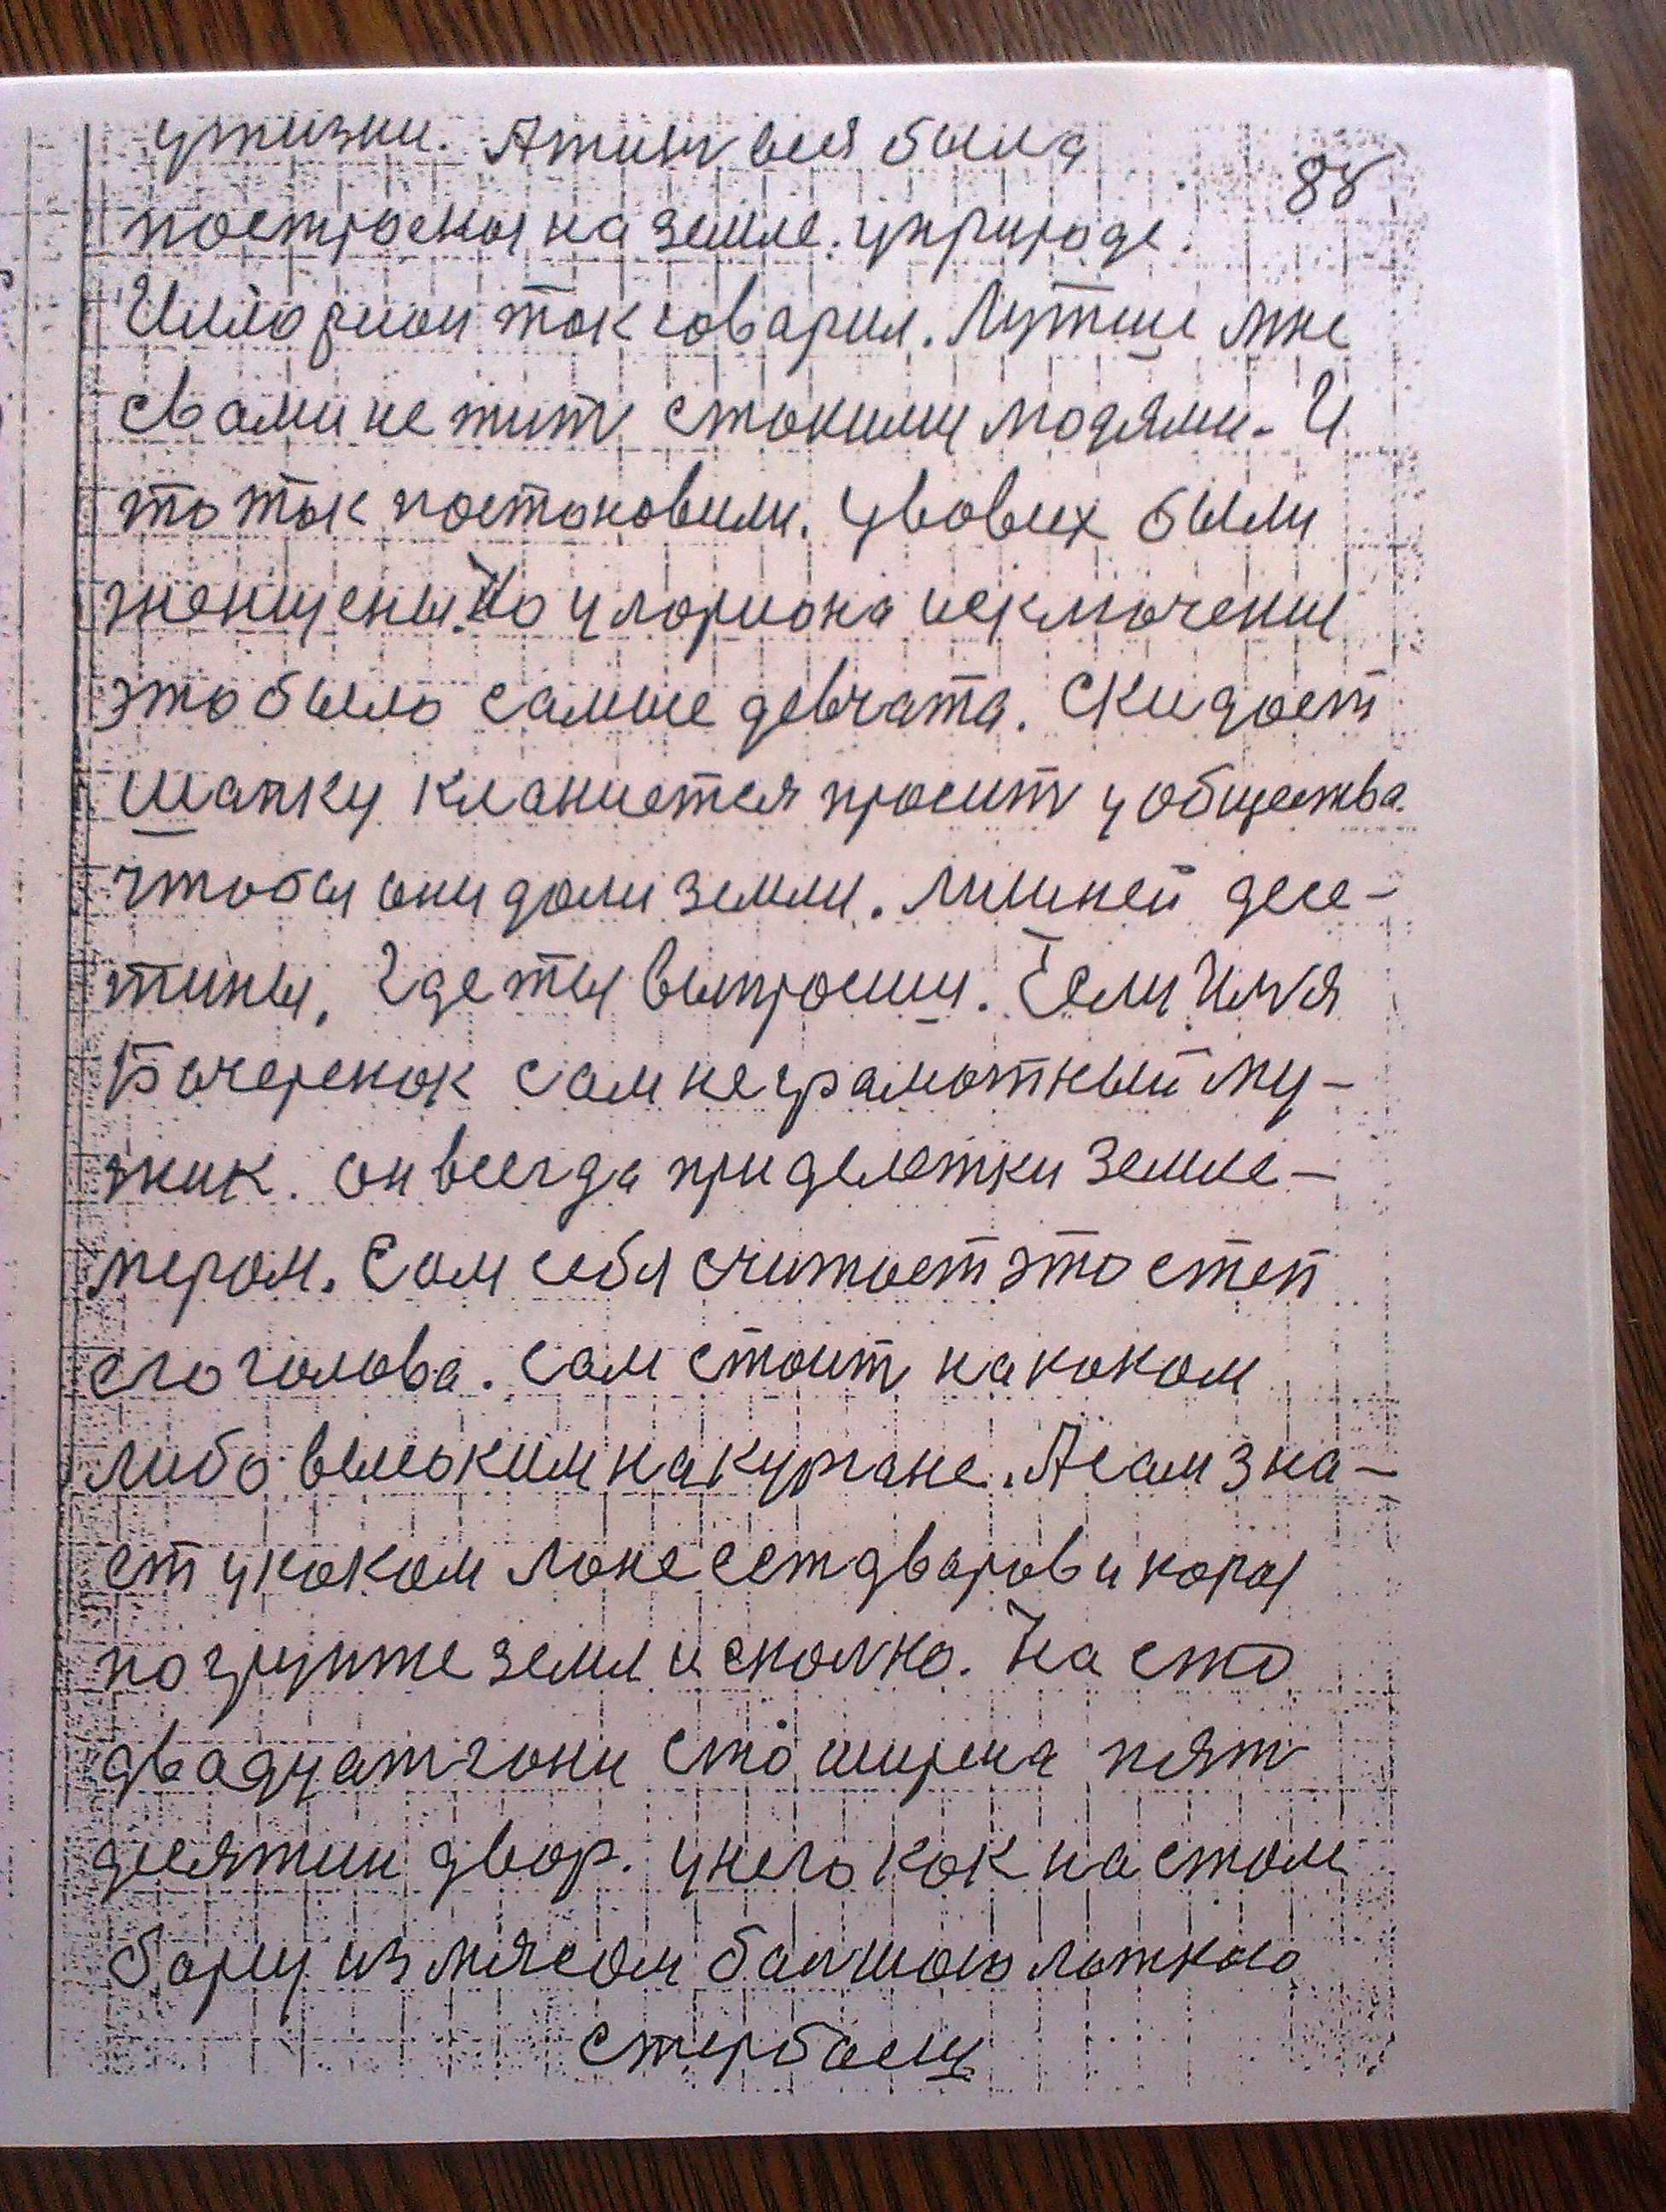 ужизни. Ажит вся была
88
построены на земле. уприроде.
Иллорион так говарил. Лутше мне
свами не жит стакими людями. И
то так постоновили. увовсех были
женщены. Но улориона исключение
это было самые девчата. Скидает
шапку кланиется просит уобщества
чтобы они дали земли. лишней десе-
тины, Где ты выпросиш. Если Илья
Бочеренок сам не грамотный му-
жик. он всегда при делетки земле-
мером. Сам себя считает это степ
его голова. сам стоит на каком
либо высоким на кургане. А сам зна-
ет укаком лане сет дваров и кара
по группе земл и сколко. На сто
двадцат гони сто ширена пят
десятин двор. унего как на стале
борщ из мясом балшою ложкою
стербаещ